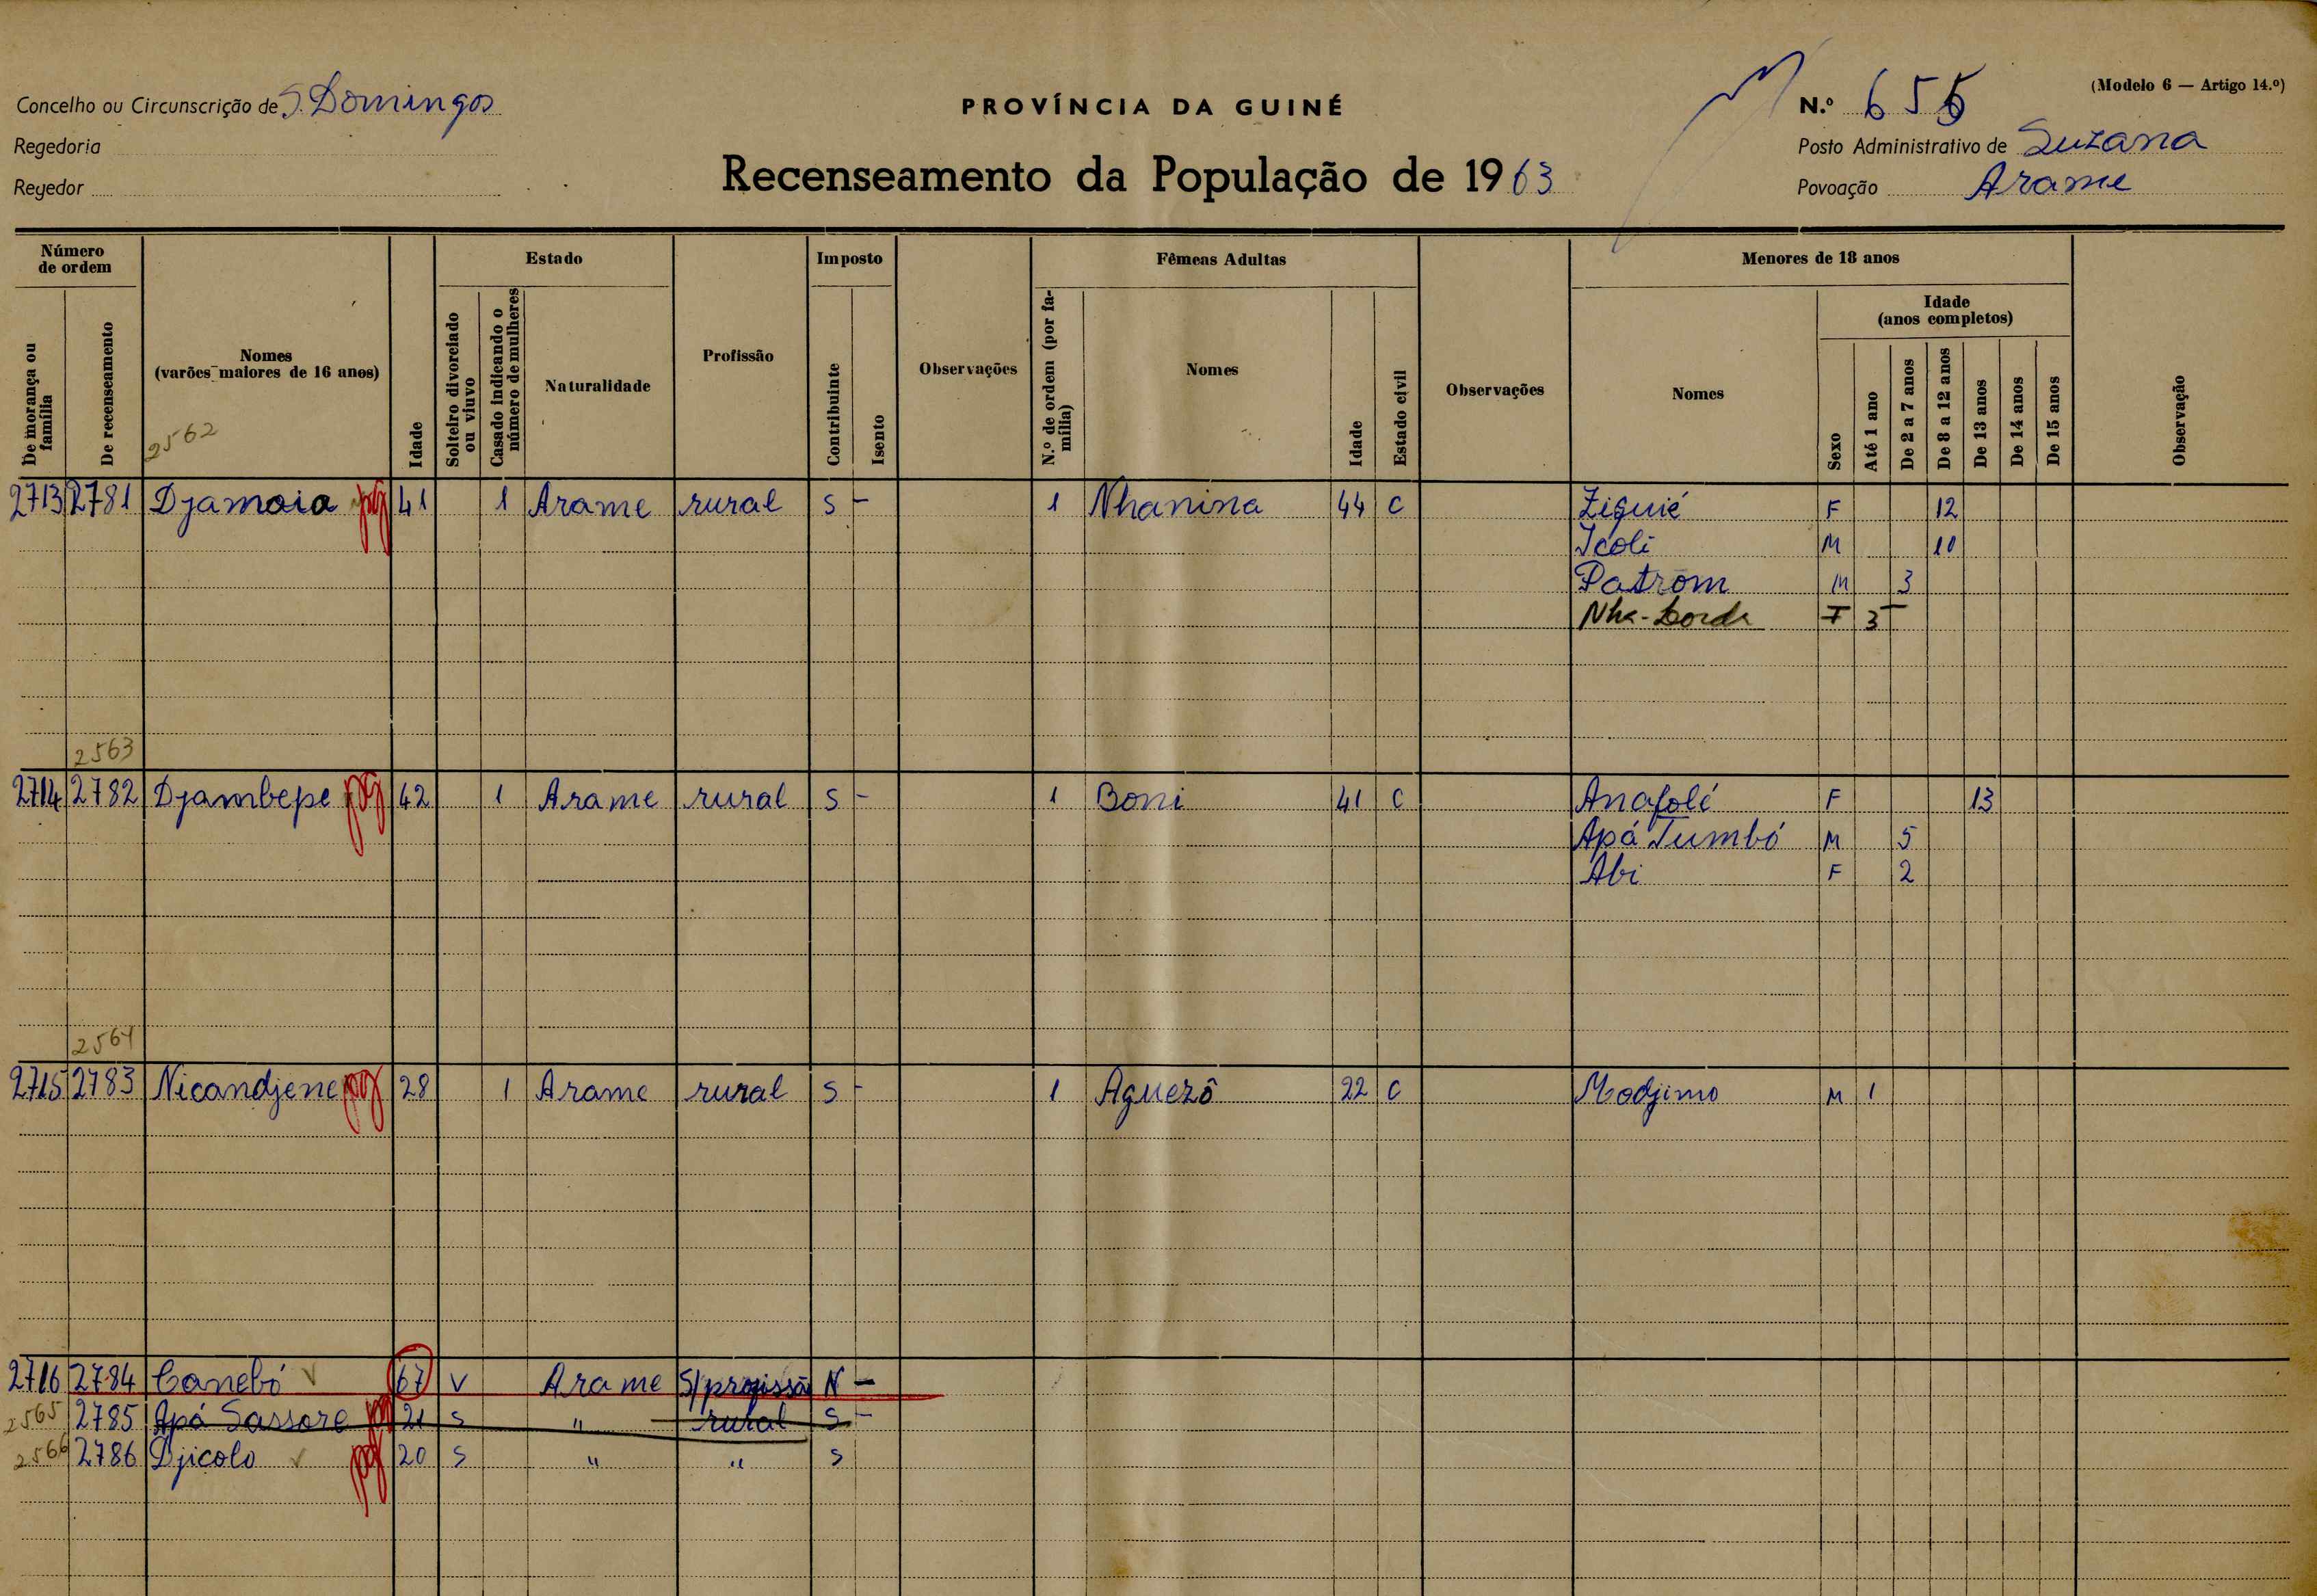 Concelho ou Circunscrição de S. Domingos
Regedoria
Regedor
PROVÍNCIA DA GUINÉ
Recenseamento da População de 1963
(Modelo 6 — Artigo 14.º)
N.º 655
Posto Administrativo de Suzana
Povoação Arame
Número de ordem
De morança ou família
De recenseamento
Nomes (varões maiores de 16 anos)
Idade
Estado
Solteiro divorciado ou viuvo
Casado indicando o número de mulheres
Naturalidade
Profissão
Imposto
Contribuinte
Isento
Observações
Fêmeas Adultas
N.º de ordem (por família)
Nomes
Idade
Estado civil
Observações
Menores de 18 anos
Nomes
Sexo
Idade (anos completos)
Até 1 ano
De 2 a 7 anos
De 8 a 12 anos
De 13 anos
De 14 anos
De 15 anos
Observação
2562
2713 2781 Djamoia pg 41 1 Arame rural S - 1 Nhanina 44 C Ziguié F 12
Icoli M 10
Patrom M 3
F 3 -
2563
2714 2782 Djambepe pg 42 1 Arame rural S - 1 Boni 41 C Anafolé F 13
Apá Tumbó M 5
Abi F 2
2564
2715 2783 Nicandjene pg 28 1 Arame rural S - 1 Aguezô 22 C Modjimo M 1
2716 2784 Canebó 67 V Arame S/profissão N -
2565 2785 Apá Sassore pg 21 S " rural S -
2566 2786 Djicolo pg 20 S " " S